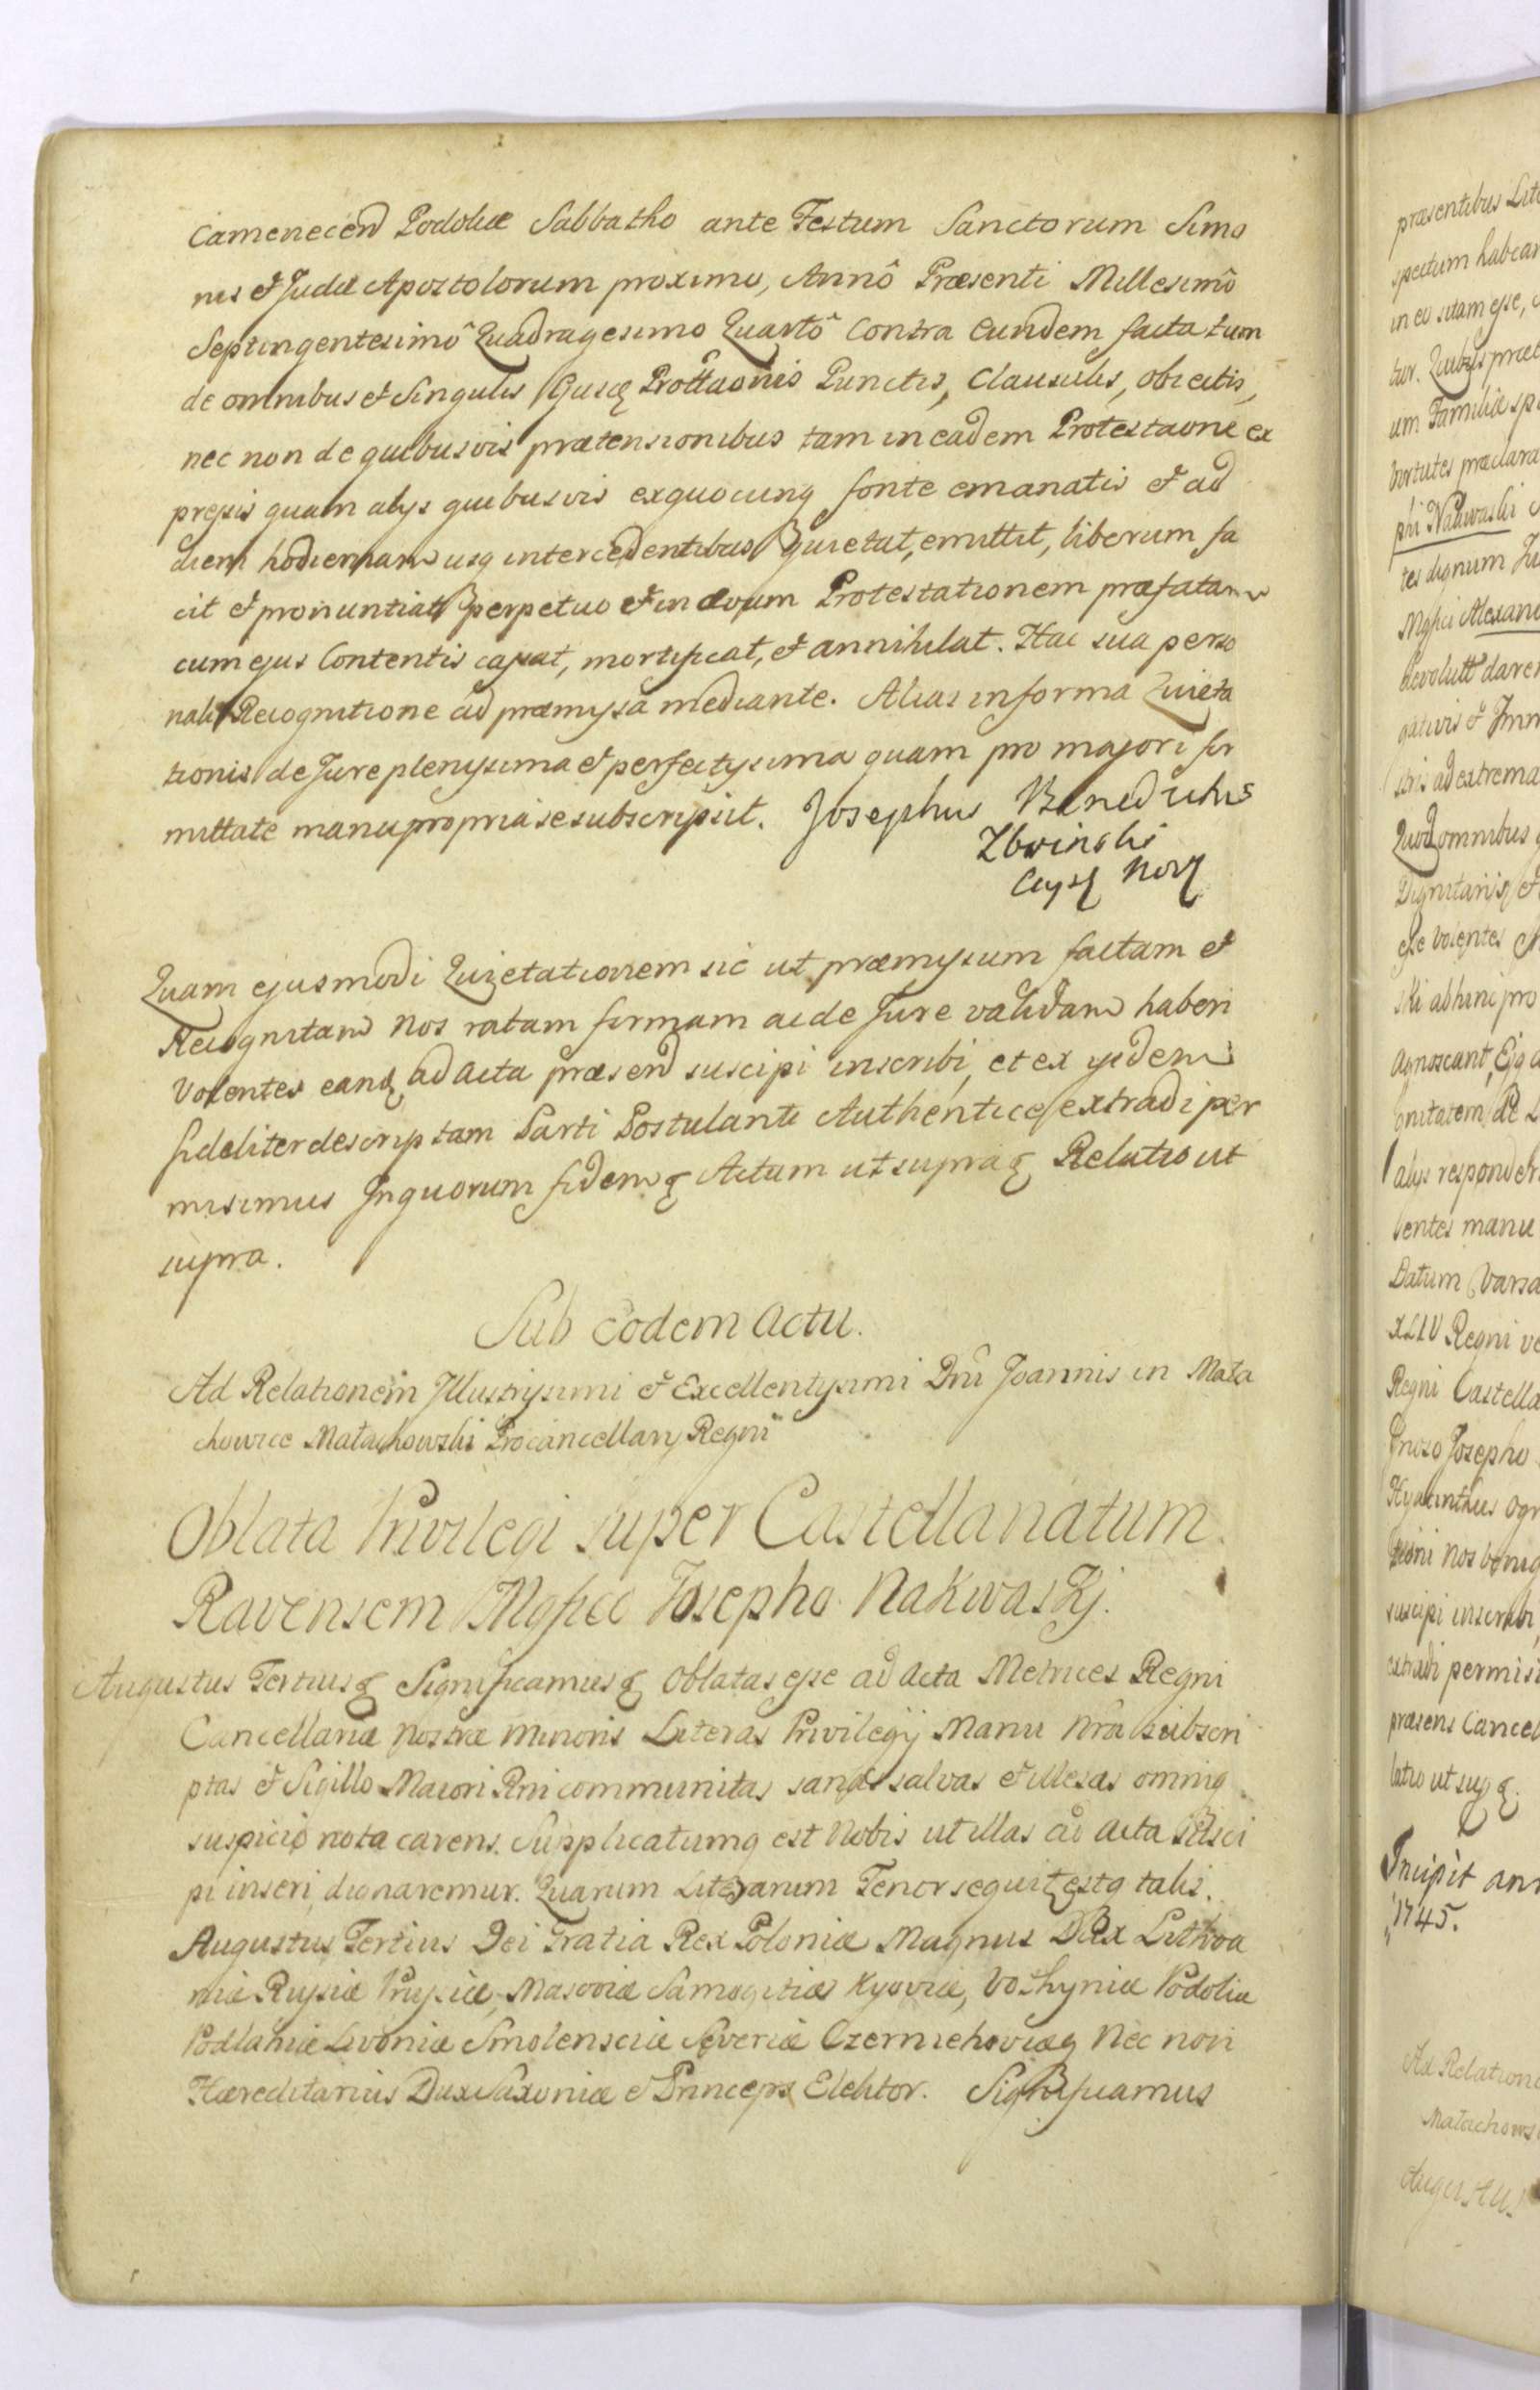 Camenecen Podoliæ Sabbatho ante Festum Sanctorum Simo
nis et Judæ Apostolorum proximo, Annô Præsenti Millesimô
Septingentesimô Quadragesimo Quartô Contra Eundem facta tum
de omnibus et Singulis Ejusq Prottaonis Punctis, Clausulis, obiectis,
nec non de quibusvis prætensionibus tam in eadem Protestaone ex
pressis quam alys quibusvis exquocunq fonte emanatis et ad
diem hodiernam usq intercedentibus Quietat, emittit, liberum fa
cit et pronuntiat perpetuo et in ævum Protestationem præfatam
cum ejus Contentis cassat, mortificat, et annihilat. Hac sua perso
nali Recognitione ad præmyssa mediante. Alias in forma Quieta
tionis de Jure plenyssima et perfectyssima quam pro majori fir
mittate manu propria se subscripsit. Josephus Benedictus
Zboinski
Quam ejusmodi Quietationem sic ut præmyssum factam et
Recognitam Nos ratam firmam ac de Jure validam haberi
Volentes eand ad Acta præsend suscipi inscribi, et ex ysdem
fideliter descriptam Parti Postulanti Authentice extradi per
misimus In quorum fidem Actum ut supra Relatio ut
supra.
Sub Eodem Actu.
Ad Relationem Illustryssimi et Excellentyssimi Dni Joannis in Mała
chowice Małachowski Procancellary Regni
Oblata Privilegi super Castellanatum
Ravensem Mgfico Josepho Nakwaskj.
Augustus Tertius Significamus Oblatas esse ad Acta Metrices Regni
Cancellariæ Nostræ Minoris Literas Privilegij Manu Nra subscri
ptas et Sigillo Maiori Rni communitas sanas salvas et illesas omniq
suspicio nota carens. Supplicatumq est Nobis ut illas ad Acta susci
pi inseri, dignaremur. Quarum Literarum Tenor sequit estq talis.
Augustus Tertius Dei Gratia Rex Poloniæ Magnus Dux Lithva
niæ Russiæ Prussiæ, Masoviæ Samogitiæ Kyoviæ, Volhyniæ Podoliæ
Podlahiæ Livoniæ Smolensciæ Severiæ Czerniehoviæq Nec non
Hæreditarius Dux Saxoniæ et Princeps Elektor. Significamus
præsentibus
in eo sitam esse,
um Familiæ
Virtutes præclara
phi Nakwaski
tes dignum
Mgfici
gativis et
ad extrema
Quod omnibus
esse Volentes
ski abhinc pro
Agnoscant,
gnitatem de
alys responder
manu
Datum Varsa
XLIV Regni
Regni Castella
Josepho
Hyacinthus Ogr
Nos
suscipi inscribi,
extradi permisi
præsens Cancel
latio ut sup
Incipit ann
1745.
Ad Relatione
Małachows
Augustus